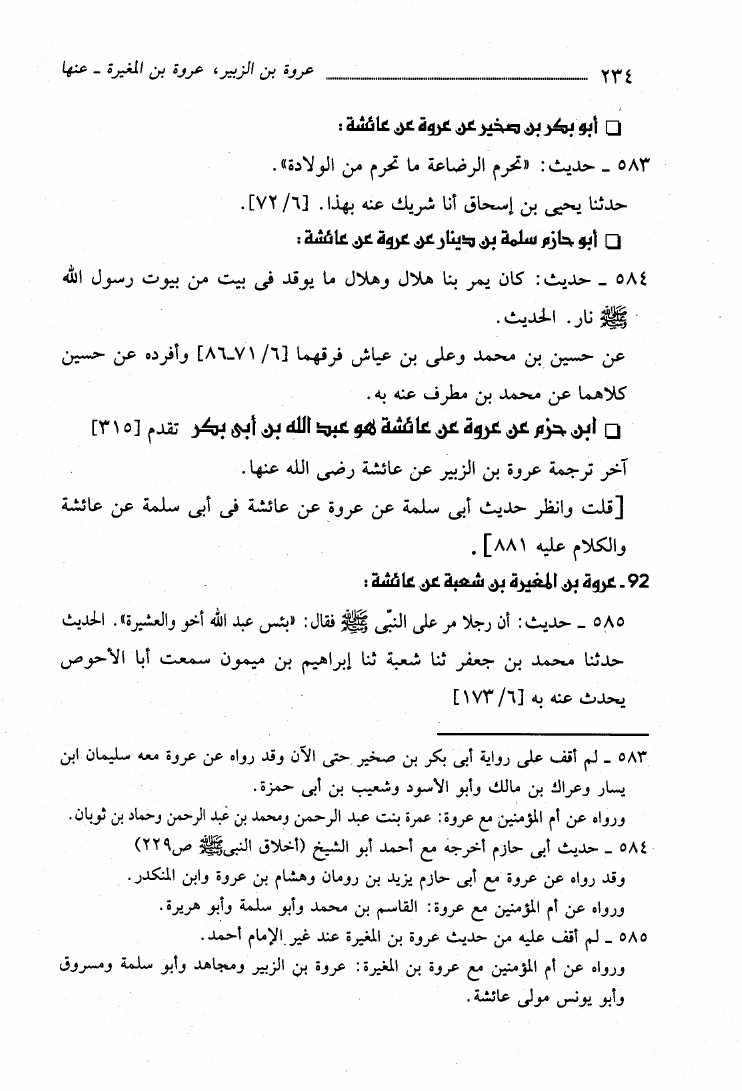 ٢٣٤ عروة بن الزبير، عروة بن المغيرة - عنها
❑ أبو بكر بن صخير عن عروة عن عائشة:
٥٨٣ - حديث: «تحرم الرضاعة ما تحرم من الولادة».
حدثنا يحيى بن إسحاق أنا شريك عنه بهذا. [٧٢/٦].
❑ أبو حازم سلمة بن دينار عن عروة عن عائشة:
٥٨٤ - حديث: كان يمر بنا هلال وهلال ما يوقد فى بيت من بيوت رسول الله
ﷺ نار. الحديث.
عن حسين بن محمد وعلى بن عياش فرقهما [٧١/٦-٨٦] وأفرده عن حسين
كلاهما عن محمد بن مطرف عنه به.
❑ ابن حزم عن عروة عن عائشة هو عبد الله بن أبى بكر تقدم [٣١٥]
آخر ترجمة عروة بن الزبير عن عائشة رضى الله عنها.
[قلت وانظر حديث أبى سلمة عن عروة عن عائشة فى أبى سلمة عن عائشة
والكلام عليه ٨٨١].
92- عروة بن المغيرة بن شعبة عن عائشة:
٥٨٥ - حديث: أن رجلا مر على النبّى ﷺ فقال: «بئس عبد الله أخو والعشيرة». الحديث
حدثنا محمد بن جعفر ثنا شعبة ثنا إبراهيم بن ميمون سمعت أبا الأحوص
يحدث عنه به [١٧٣/٦]
٥٨٣ - لم أقف على رواية أبى بكر بن صخير حتى الآن وقد رواه عن عروة معه سليمان ابن
يسار وعراك بن مالك وأبو الأسود وشعيب بن أبى حمزة.
ورواه عن أم المؤمنين مع عروة: عمرة بنت عبد الرحمن ومحمد بن عبد الرحمن وحماد بن ثوبان.
٥٨٤ - حديث أبى حازم أخرجه مع أحمد أبو الشيخ (أخلاق النبىﷺ ص٢٢٩)
وقد رواه عن عروة مع أبى حازم يزيد بن رومان وهشام بن عروة وابن المنكدر.
ورواه عن أم المؤمنين مع عروة: القاسم بن محمد وأبو سلمة وأبو هريرة.
٥٨٥ - لم أقف عليه من حديث عروة بن المغيرة عند غير الإمام أحمد.
ورواه عن أم المؤمنين مع عروة بن المغيرة: عروة بن الزبير ومجاهد وأبو سلمة ومسروق
وأبو يونس مولى عائشة.